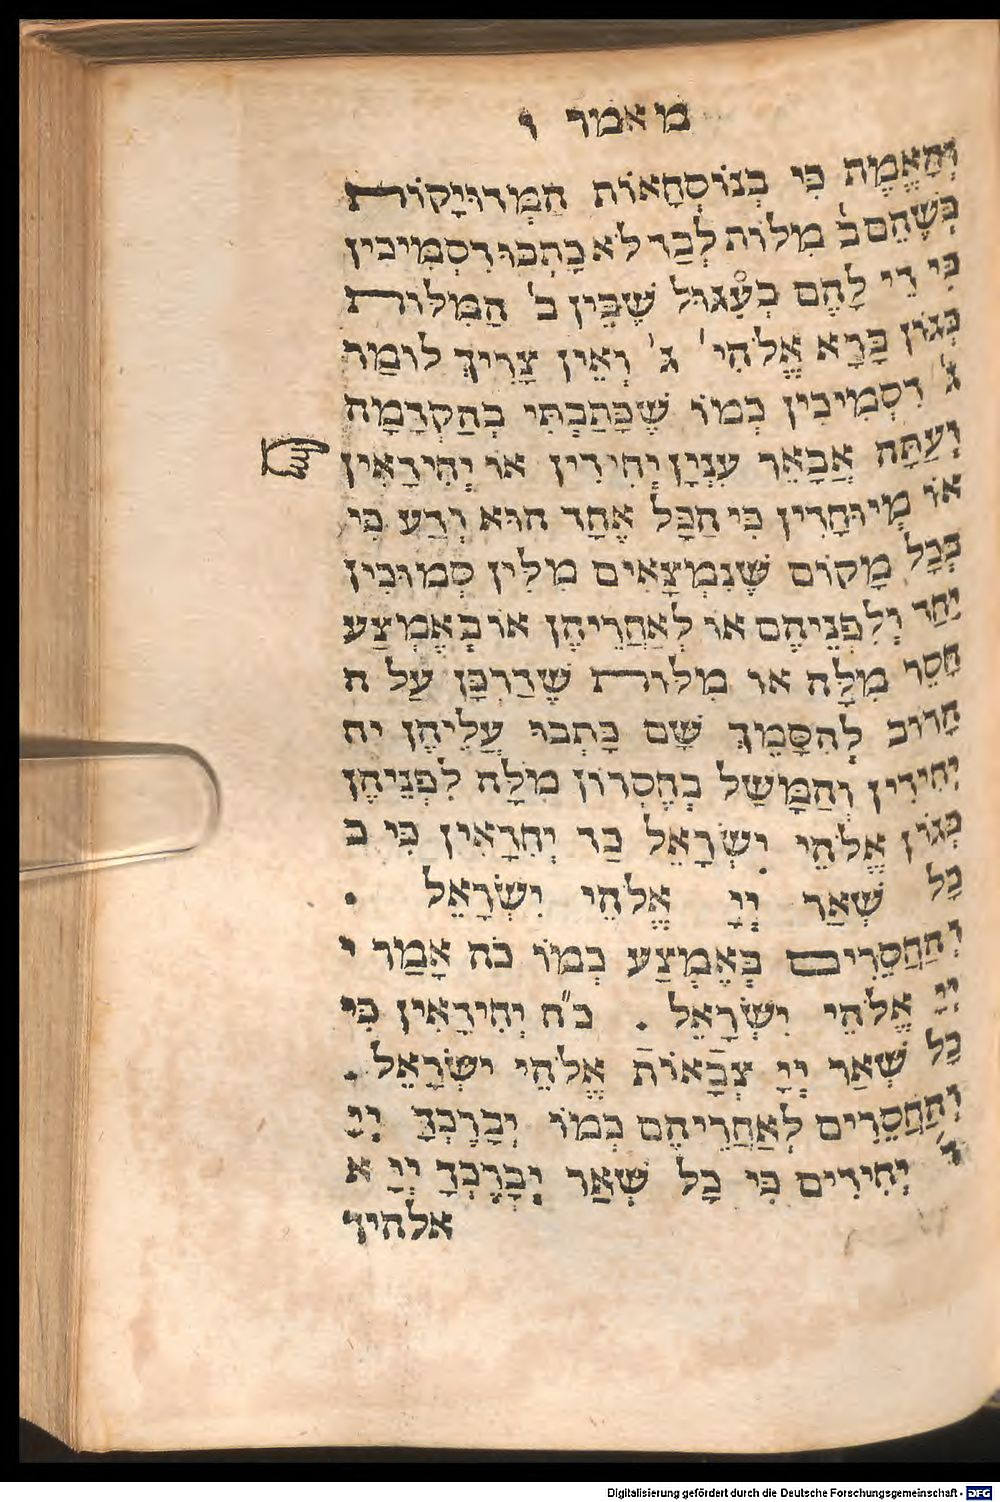 מאמר ו
וְהָאֱמֶת כִּי בְנוֹסְחָאוֹת הַמְדוּיָקוֹת
כְּשֶׁהֵם ב' מִלּוֹת לְבַד לֹא כָתְבוּ דִסְמִיכִין
כִּי דַי לָהֶם בְּעִגוּל שֶׁבֵּין ב' הַמִּלּוֹת
כְּגוֹן בָּרָא אֱלֹהִי' ג' וְאֵין צָרִיךְ לוֹמַר
ג' דִסְמִיכִין כְמוֹ שֶׁכָּתַבְתִּי בְהַקְדָמָה
וְעַתָּה אֲבָאֵר עִנְיָן יְחִידִין אוֹ יְחִידָאִין
אוֹ מְיוּחָדִין כִּי הַכָּל אֶחָד הוּא וְדַע כִּי
בְּכָל מָקוֹם שֶׁנִּמְצָאִים מִלִּין סְמוּכִין
יַחַד וְלִפְנֵיהֶם אוֹ לְאַחֲרֵיהֶן אוֹ בְּאֶמְצַע
חָסֵר מִלָּה אוֹ מִלּוֹת שֶׁדַּרְכָּן עַל ה
הָרוֹב לְהִסָּמֵךְ שָׁם כָּתְבוּ עֲלֵיהֶן יח
יְחִידִין וְהַמָּשָׁל בְּחֶסְרוֹן מִלָּה לִפְנֵיהֶן
כְּגוֹן אֱלֹהֵי יִשְׂרָאֵל כַד יְחִדָאִין כִּי כ
כָל שְׁאַר יְיָ אֱלֹהֵי יִשְׂרָאֵל .
וְהַחֲסֵרִים בְּאֶמְצַע כְּמוֹ כֹּה אָמַר י
יְיָ אֱלֹהֵי יִשְׂרָאֵל . כ"ח יְחִידָאִין כִּי
כָל שְׁאַר יְיָ צְבָאוֹת אֱלֹהֵי יִשְׂרָאֵל .
וְהַחֲסֵרִים לְאַחֲרֵיהֶם כְּמוֹ יְבָרֶכְךָ יְיָ
יְחִידִים כִּי כָל שְׁאַר יְבָרֶכְךָ יְיָ א
אלהיך
Digitalisierung gefördert durch die Deutsche Forschungsgemeinschaft - DFG